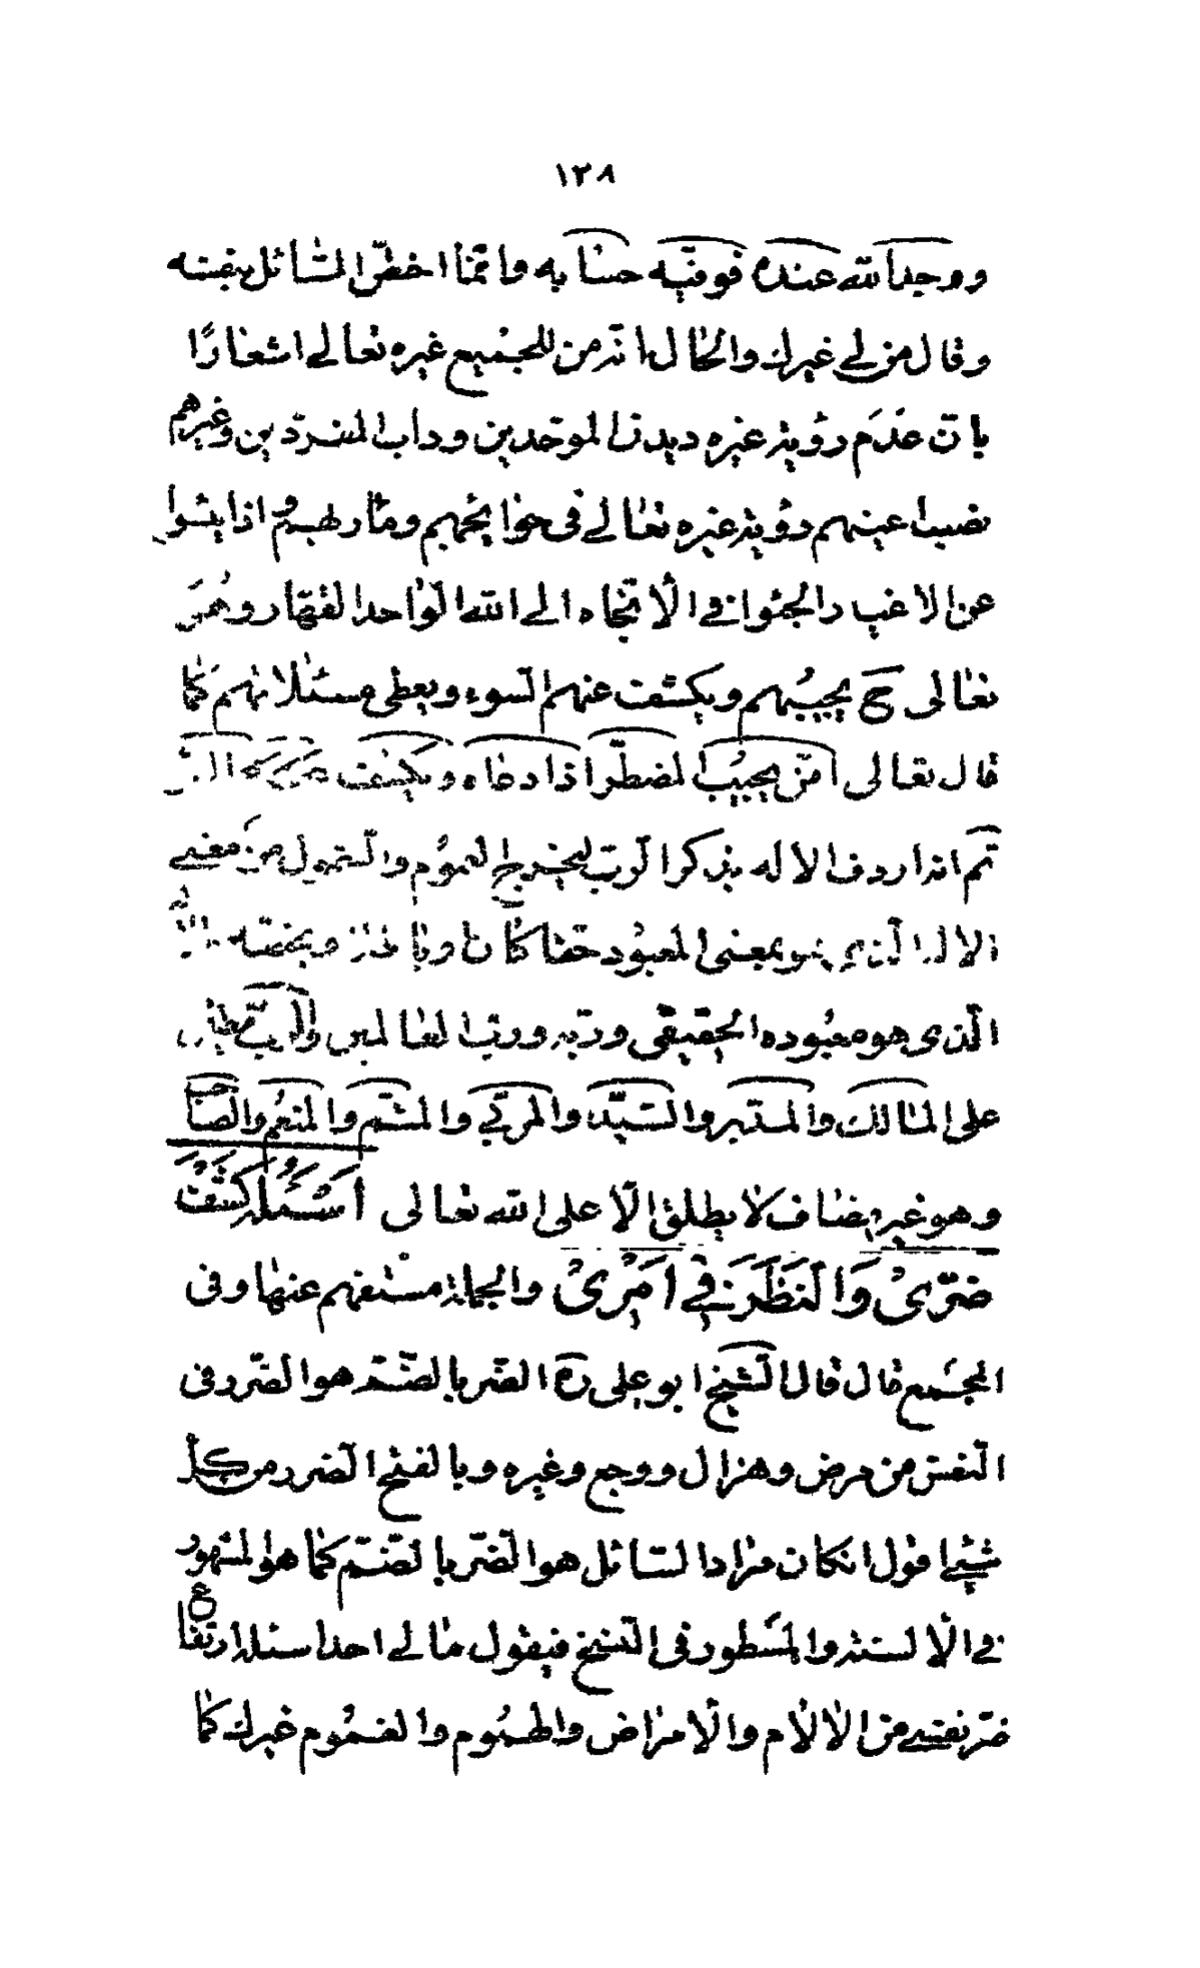 ١٣٨
ووجد الله عنده فوفيه حسابه وانما اخص السائل بنفسه
وقال من لي غيرك والحال انه من للجميع غيره تعالى اشعارا
بان عدم رؤية غيره ديدن الموحدين وداب المتفردين وغيرهم
نصب اعينهم رؤية غيره تعالى في حوائجهم ومآربهم واذا يئسوا
عن الاغيار والجئوا في الالتجاء الى الله الواحد القهار وهو
تعالى ح يجيبهم ويكشف عنهم السوء ويعطى مسئلاتهم كما
قال تعالى امن يجيب المضطر اذا دعاه ويكشف السوء
ثم انه اردف الاله بذكر الرب ليخرج العموم والشمول من معنى
الاله الذي هو بمعنى المعبود حقا كان وباطلا ويخصه
الذى هو معبوده الحقيقى وربه ورب العالمين والرب يطلق
على المالك والمدبر والسيد والمربي والمتمم والمنعم والصاحب
وهو غير مضاف لا يطلق الا على الله تعالى اَسْئَلُهُ كَشْفَ
ضُرّىْ وَالنَّظَرَ فِي اَمْرِىْ والجملة مستفهم عنها وفى
المجمع قال قال الشيخ ابو على ره الضر بالضم هو الضرر فى
النفس من مرض وهزال ووجع وغيره وبالفتح الضرر من كل
شيئ اقول ان كان مراد السائل هو الضر بالضم كما هو المشهور
في الالسنة والمسطور فى النسخ فيقول مالى احد اسئله ارتفاع
ضر نفسي من الالام والامراض والهموم والغموم غيرك كما